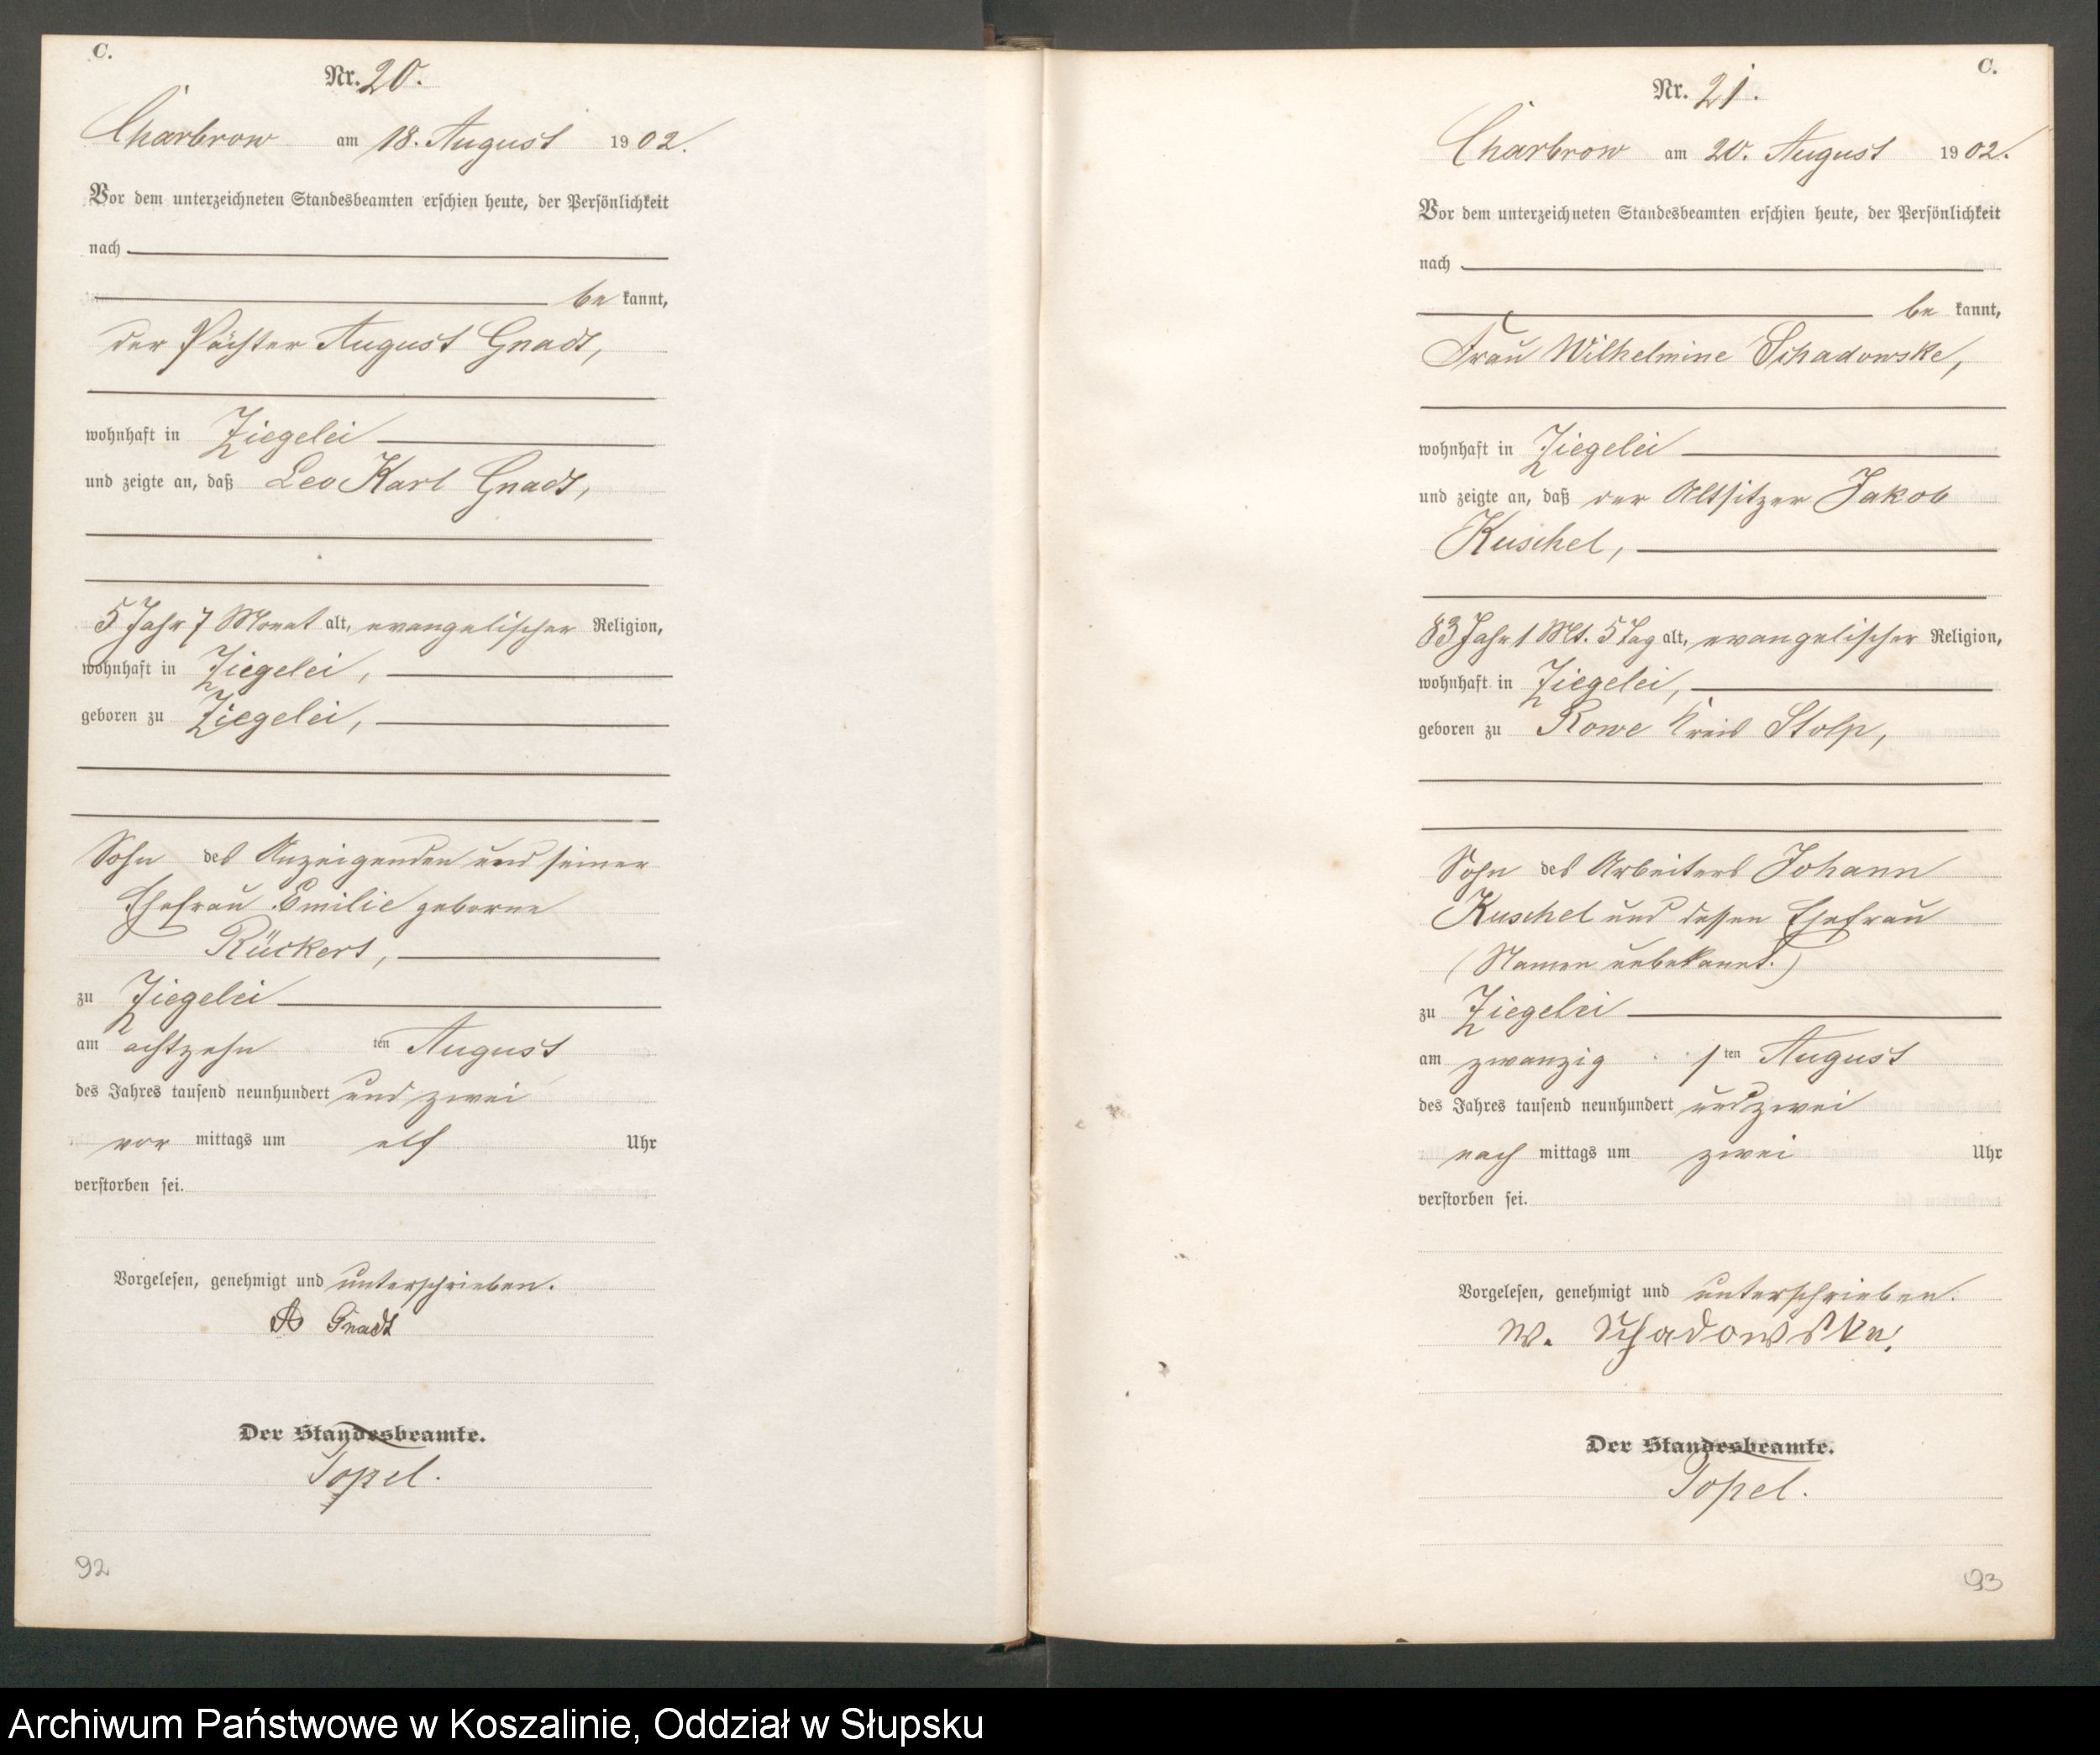 C.
Nr. 20.
Charbrow am 18. August 1902.
Vor dem unterzeichneten Standesbeamten erschien heute, der Persönlichkeit
nach
be kannt,
der Pächter August Gnadt,
wohnhaft in Ziegelei
und zeigte an, daß Leo Karl Gnadt,
5 Jahr 7 Monat alt, evangelischer Religion,
wohnhaft in Ziegelei,
geboren zu Ziegelei,
Sohn des Anzeigenden und seiner
Ehefrau Emilie geborne
Rückert,
zu Ziegelei
am achtzehn ten August
des Jahres tausend neunhundert und zwei
vor mittags um elf Uhr
verstorben sei.
Vorgelesen, genehmigt und unterschrieben.
A Gnadt
Der Standesbeamte.
Topel.
92
C.
Nr. 21.
Charbrow am 20. August 1902.
Vor dem unterzeichneten Standesbeamten erschien heute, der Persönlichkeit
nach
be kannt,
Frau Wilhelmine Schadowske,
wohnhaft in Ziegelei
und zeigte an, daß der Altsitzer Jakob
Kuschel,
83 Jahr 1 Mt. 5 Tag alt, evangelischer Religion,
wohnhaft in Ziegelei,
geboren zu Rowe Kreis Stolp,
Sohn des Arbeiters Johann
Kuschel und dessen Ehefrau
(Namen unbekannt.)
zu Ziegelei
am zwanzig sten August
des Jahres tausend neunhundert und zwei
nach mittags um zwei Uhr
verstorben sei.
Vorgelesen, genehmigt und unterschrieben.
W. Schadowske,
Der Standesbeamte.
Topel.
93
Archiwum Państwowe w Koszalinie, Oddział w Słupsku